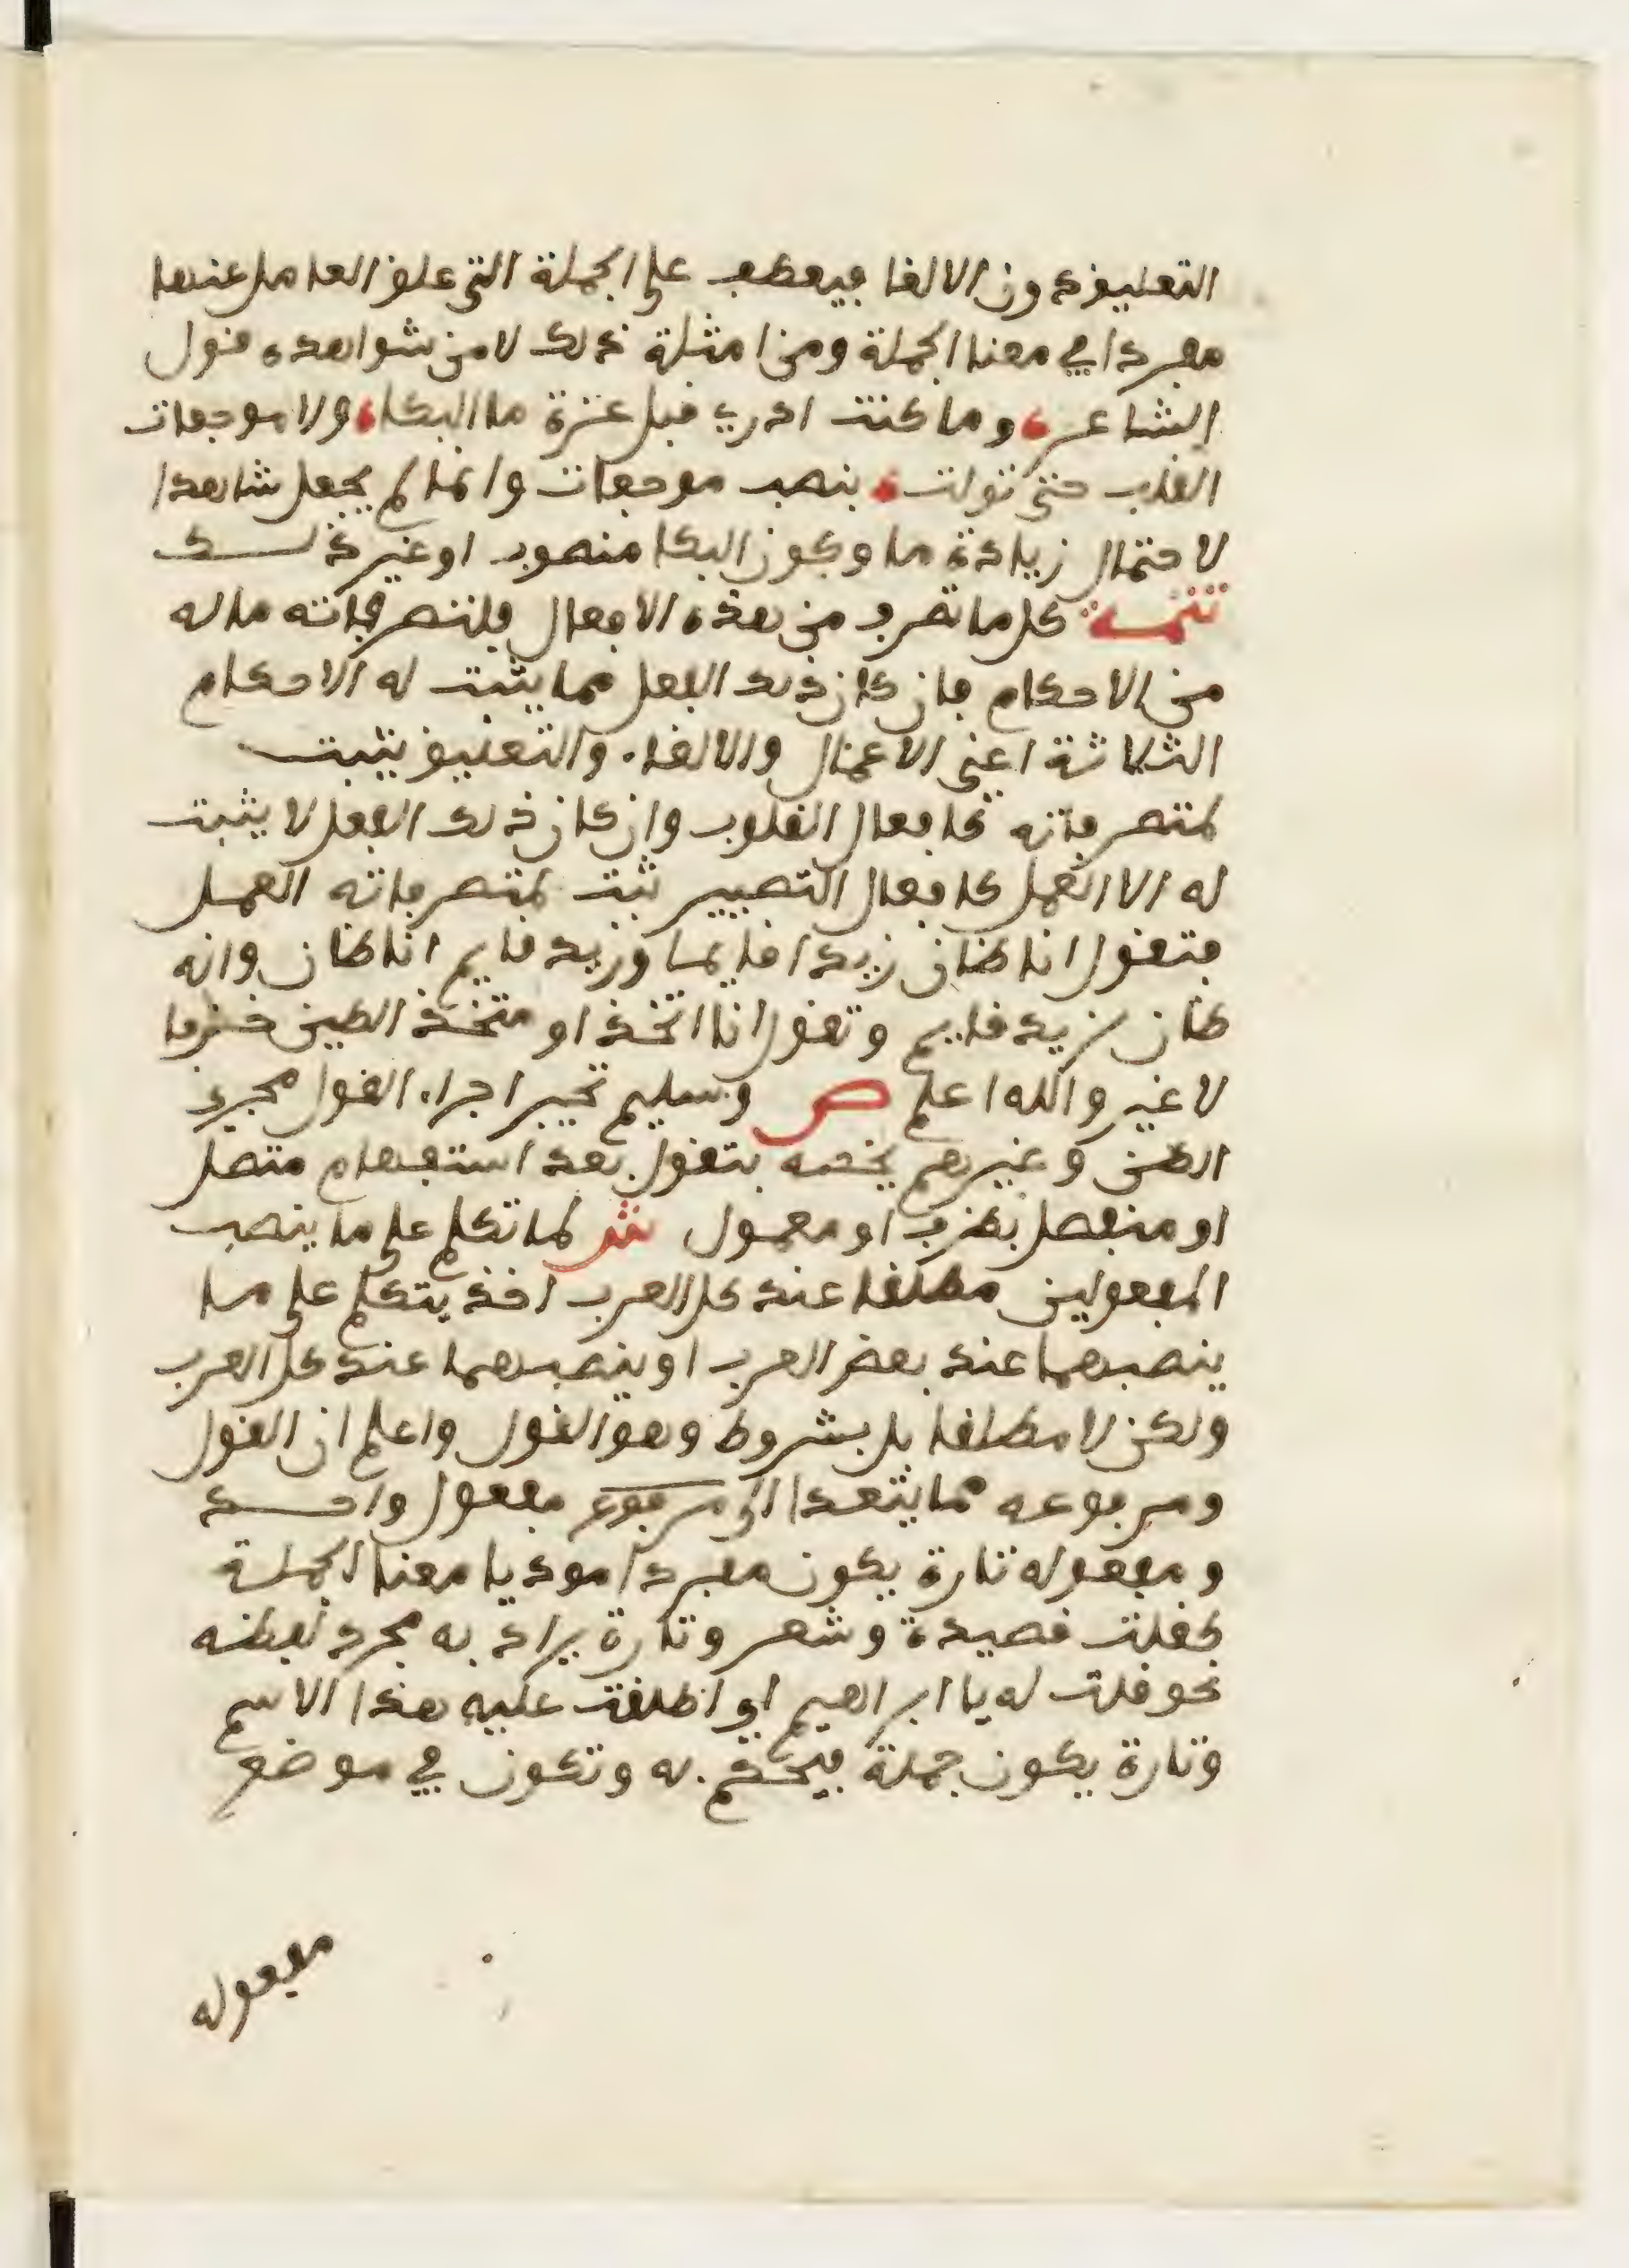 التعليق دون الالغا فيعطف على الجملة التي علق العامل عنها
مفردا في معنا الجملة ومن امثلة ذلك لا من شواهده قول
الشاعر، وما كنت ادري قبل عزة ما البكا، ولا موجعات
القلب حتى تولت، بنصب موجعات وانما لم يجعل شاهدا
لاحتمال زيادة ما وكون البكا منصوب او غير ذلك
تتمة كل ما تصرف من هذه الافعال فلتصرفاته ما له
من الاحكام فان كان ذلك الفعل مما يثبت له الاحكام
الثلاثة اعني الاعمال والالغاء والتعليق يثبت
لمتصرفاته كافعال القلوب وان كان ذلك الفعل لا يثبت
له الا العمل كافعال التصيير ثبت لمتصرفاته العمل
فتقول انا ظان زيدا قايما وزيد قايم انا ظان وانه
ظان زيد قايم وتقول انا اتخذ او متخذ الطين خزفا
لا غير والله اعلم ص وسليم تخير اجراء القول مجرى
الظن وغيرهم يخصه بتقول بعد استفهام متصل
او منفصل بظرف او معمول ش لما تكلم على ما ينصب
المفعولين مطلقا عند كل العرب اخذ يتكلم على ما
ينصبهما عند بعض العرب او ينصبهما عند كل العرب
ولكن لا مطلقا بل بشروط وهو القول واعلم ان القول
ومربوعه مما يتعدا الى مفعول واحد
ومفعوله تارة يكون مفردا موديا معنا الجملة
كقلت قصيدة وشعر وتارة يراد به مجرد لفظه
نحو قلت له يا ابراهيم اي اطلقت عليه هذا الاسم
وتارة يكون جملة فيحكم به وتكون في موضع
مفعوله